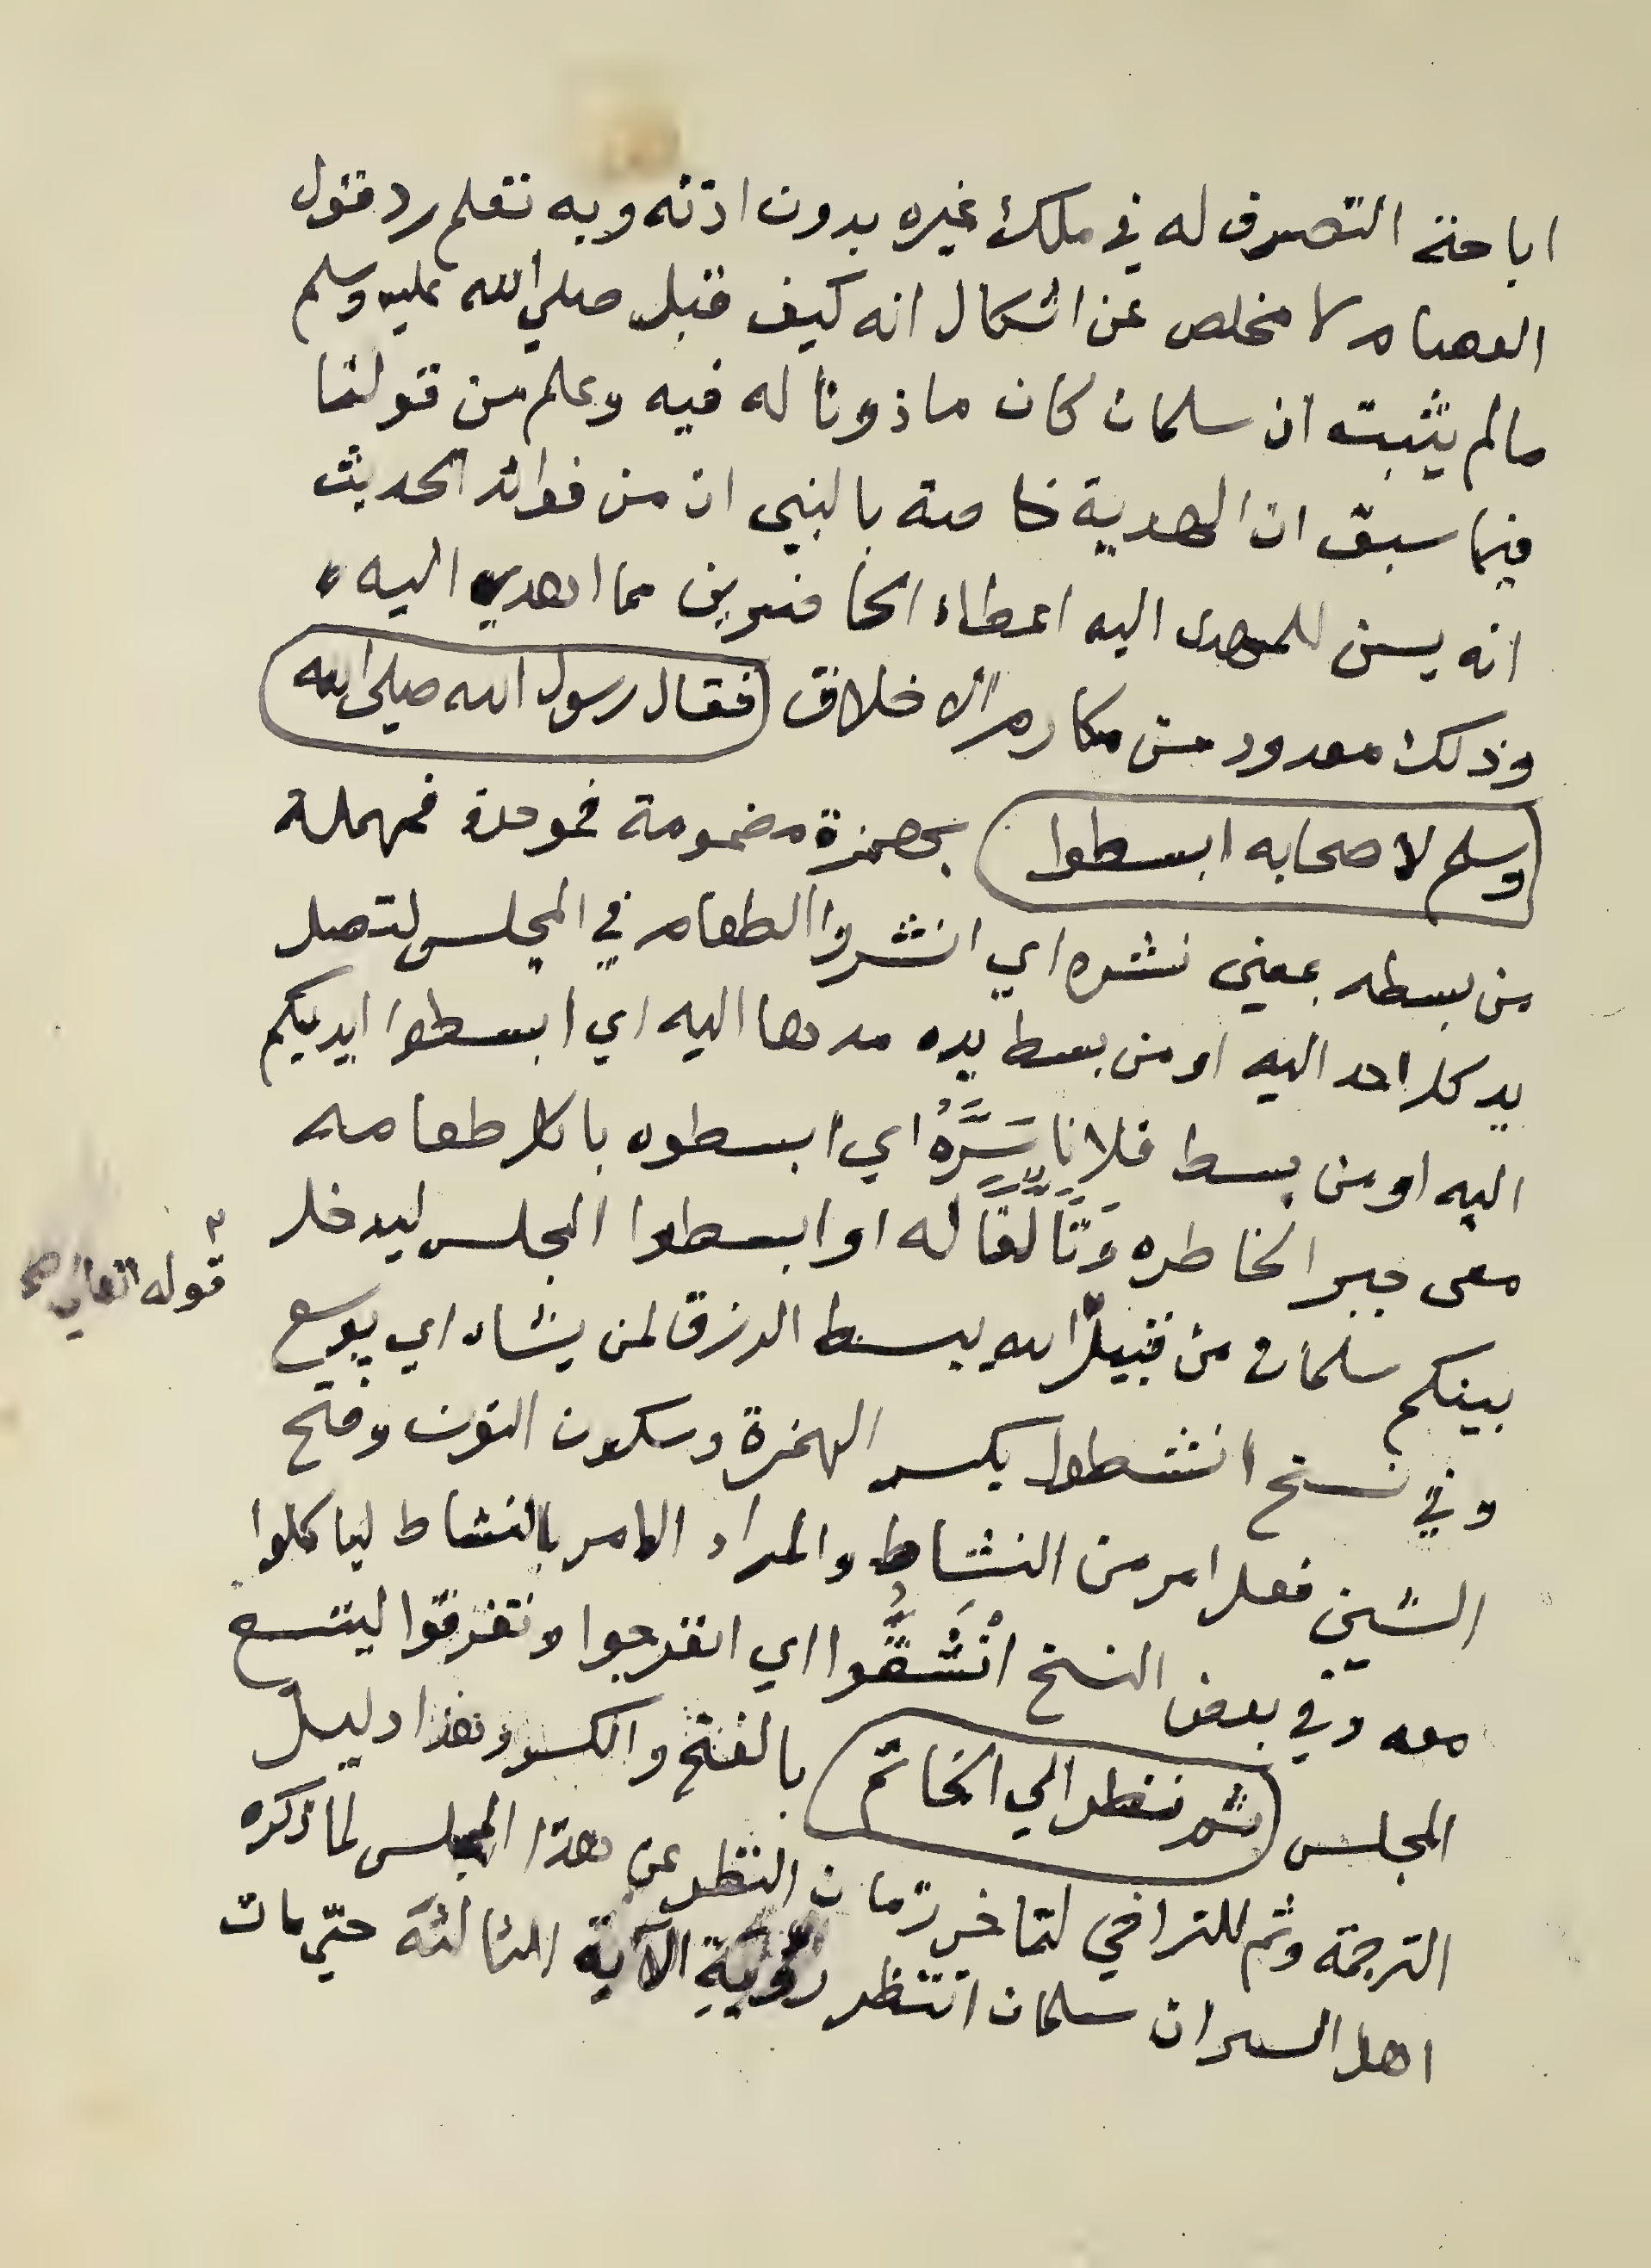 اباحة التصرف له في ملك غيره بدون اذنه وبه تعلم رد قول
العصام لا مخلص عن اشكال انه كيف قبل صلي الله عليه وسلم
مالم يثبت ان سلمان كان ماذونا له فيه وعلم من قولنا
فيما سبق ان الهدية خاصة بالنبي ان من فوائد الحديث
انه يسن للمهدى اليه اعطاء الحاضرين مما اهدي اليه
وذلك معدود من مكارم الاخلاق (فقال رسول الله صلي الله
وسلم لاصحابه ابسطوا) بهمزة مضمومة فموحدة فمهملة
من بسطه بمعني نشره اي انشروا الطعام في المجلس لتصل
يد كل احد اليه او من بسط يده مدها اليه اي ابسطوا ايديكم
اليه او من بسط فلانا سَرَّهُ اي ابسطوه باكل طعامه
معي جبر الخاطره وَتَأَلُّفًا له او ابسطوا المجلس ليدخل
بينكم سلمان من قبيل الله يبسط الرزق لمن يشاء اي يوسع
وفي نسخ انشطوا بكسر الهمزة وسكون النون وفتح
الشين فعل امر من النشاط والمراد الامر بالنشاط لياكلوا
معه وفي بعض النسخ انْشَقُّوا اي انفرجوا وتفرقوا ليتسع
المجلس (ثم نظر الي الخاتم) بالفتح والكسر وهذا دليل
الترجمة وثم للتراخي لتاخر زمان النظر عن هذا المجلس لما ذكره
اهل السير ان سلمان انتظر رؤيَةِ الآية الثالثة حتي مات
٣
قوله تعالي صح